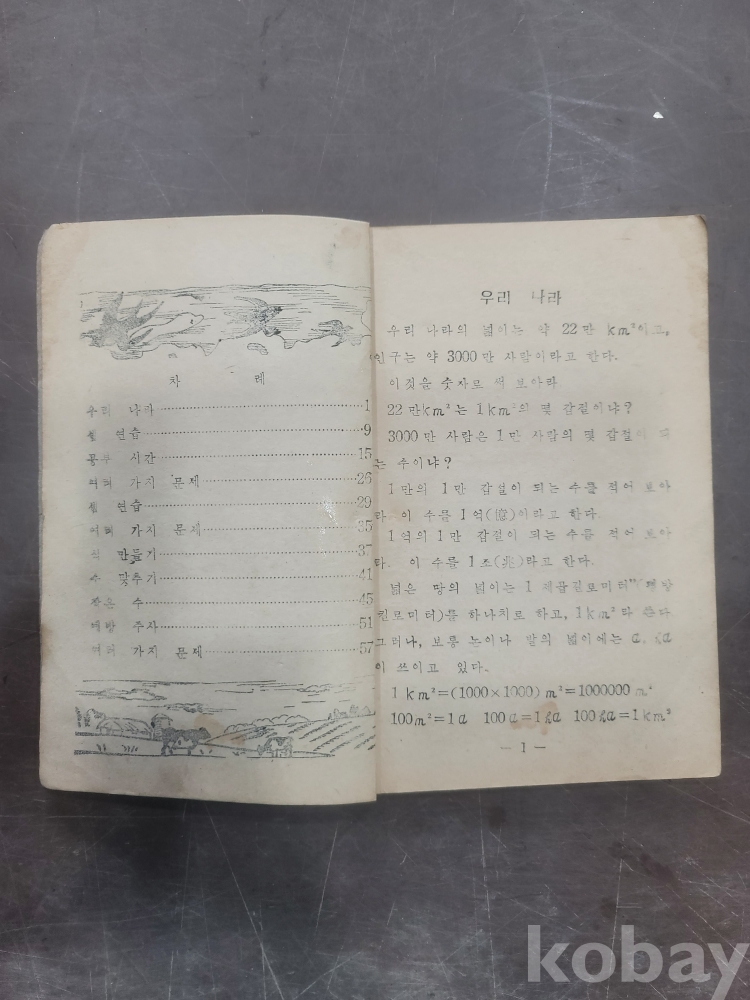 차 례
우리 나라 1
셈 연습 9
공부 시간 15
여러 가지 문제 26
셈 연습 29
여러 가지 문제 35
만들기 37
수 맞추기 41
작은 수 45
51
여러 가지 문제 57
우리 나라
우리 나라의 넓이는 약 22만 km²이고,
인구는 약 3000만 사람이라고 한다.
이것을 숫자로 써 보아라
22만km²는 1km²의 몇 갑절이냐?
3000만 사람은 1만 사람의 몇 갑절이 되
는 수이냐?
1만의 1만 갑절이 되는 수를 적어 보아
라 이 수를 1억(億)이라고 한다.
1억의 1만 갑절이 되는 수를 적어 보아
라. 이 수를 1조(兆)라고 한다.
넓은 땅의 넓이는 1
킬로미터)를 하나치로 하고, 1km²라 쓴다
그러나, 보통 논이나 밭의 넓이에는 a, ha
이 쓰이고 있다.
1 km²=(1000×1000) m²=1000000 m²
100m²=1a 100a=1ha 100ha=1km²
— 1 —
kobay